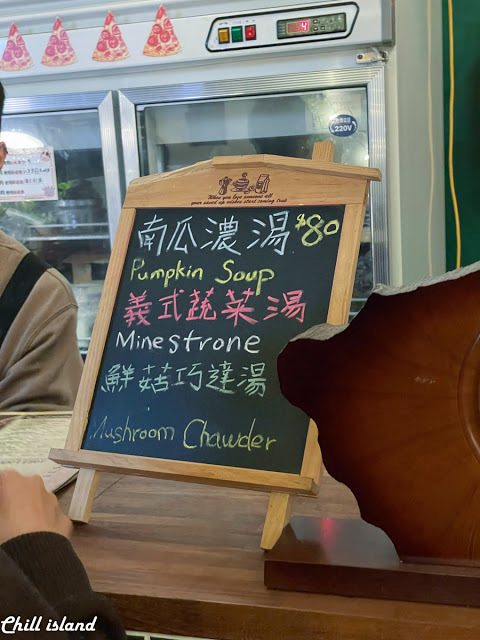 220V
4
When you love someone all
your saved up wishes start coming true
南瓜濃湯 $80
Pumpkin Soup
義式蔬菜湯
Minestrone
鮮菇巧達湯
Mushroom Chawder
Chill island